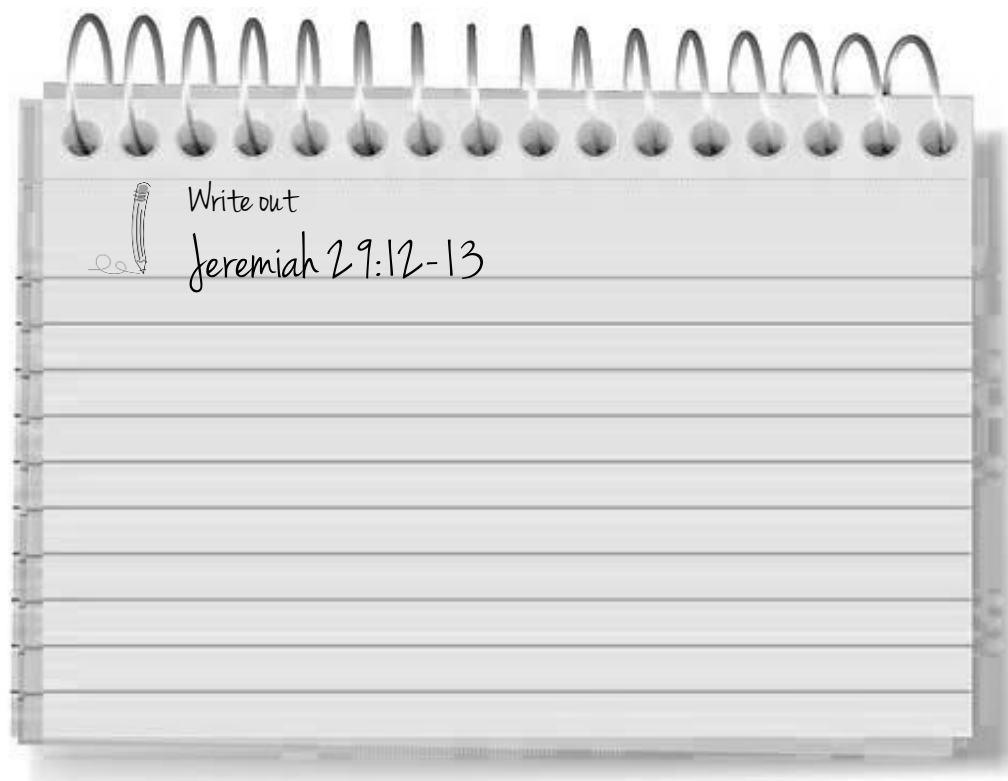 Write out
Jeremiah 29:12-13